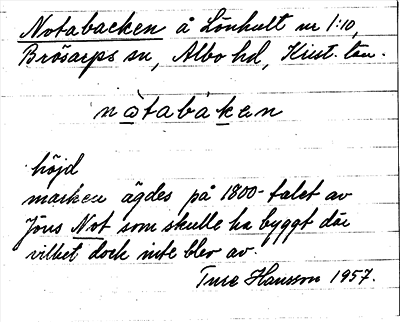 Notabacken å Lönhult nr 1:10,
Brösarps sn, Albo hd, Krist. län.
nòtabàken
höjd
marken ägdes på 1800-talet av
Jöns Not som skulle ha byggt där
vilket dock inte blev av.
Ture Hansson 1957.